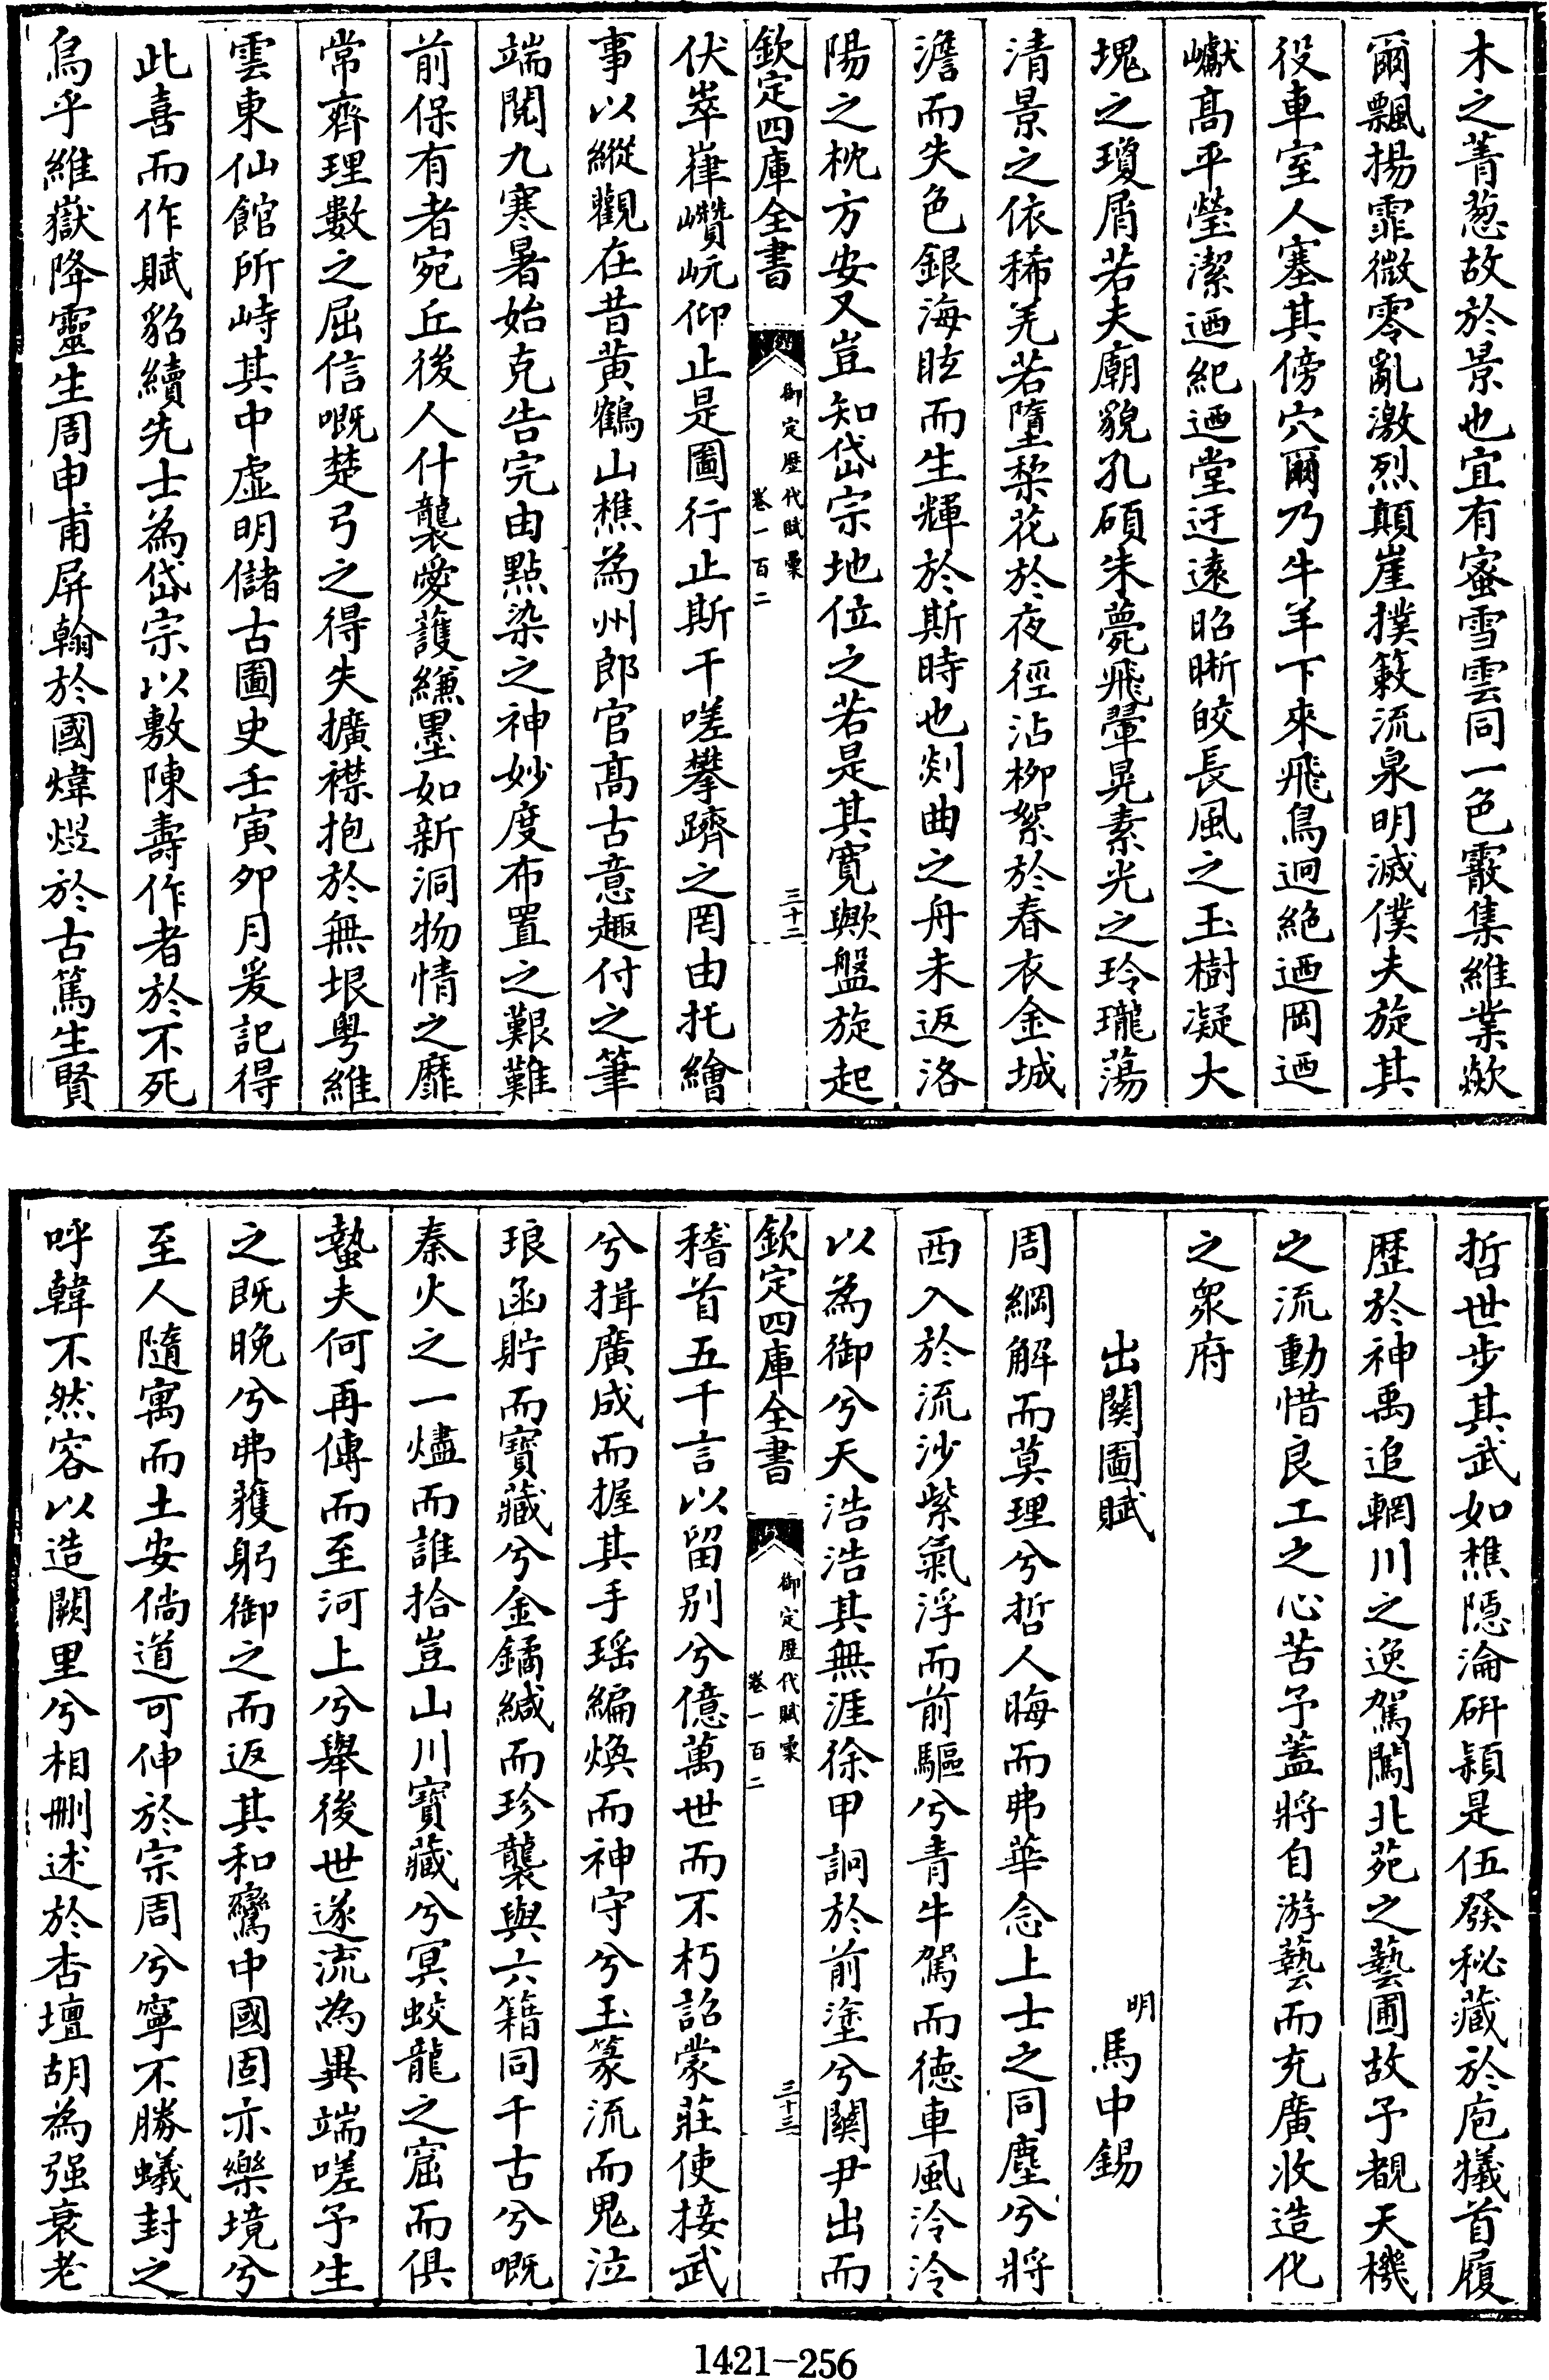 木之菁葱故於景也宜有蜜雪雲同一色霰集維業歘
爾飄揚霏微零亂激烈顛崖撲簌流泉明滅僕夫旋其
役車室人塞其傍穴爾乃牛羊下來飛鳥迥絕迺岡迺
巘高平瑩潔迺紀迺堂迂遠昭晣皎長風之玉樹凝大
塊之瓊屑若夫廟貌孔碩朱甍飛翬晃素光之玲瓏蕩
清景之依稀羌若墮棃花於夜徑沾柳絮於春衣金城
澹而失色銀海眩而生輝於斯時也剡曲之舟未返洛
陽之枕方安又豈知岱宗地位之若是其寛歟盤旋起
欽定四庫全書 御定歴代賦彙 卷一百二 三十二
伏崒嵂巑岏仰止是圖行止斯干嗟攀躋之罔由托繪
事以縱觀在昔黄鶴山樵為州郎官髙古意趣付之筆
端閱九寒暑始克告完由點染之神妙度布置之艱難
前保有者宛丘後人什襲愛護縑墨如新洞物情之靡
常齊理數之屈信嘅楚弓之得失擴襟抱於無垠粤維
雲東仙館所峙其中虛明儲古圖史壬寅夘月爰記得
此喜而作賦貂續先士為岱宗以敷陳壽作者於不死
烏乎維嶽降靈生周申甫屏翰於國煒煜於古篤生賢
哲世步其武如樵隱淪硏穎是伍發秘藏於庖犧首履
歴於神禹追輞川之逸駕闖北苑之藝圃故予覩天機
之流動惜良工之心苦予蓋將自游藝而充廣收造化
之衆府
出關圖賦 明馬中錫
周綱解而莫理兮哲人晦而弗華念上士之同塵兮將
西入於流沙紫氣浮而前驅兮青牛駕而徳車風泠泠
以為御兮天浩浩其無涯徐甲詗於前塗兮關尹出而
欽定四庫全書 御定歴代賦彙 卷一百二 三十三
稽首五千言以留别兮億萬世而不朽詔蒙莊使接武
兮揖廣成而握其手瑶編煥而神守兮玉篆流而鬼泣
琅函貯而寳藏兮金鐍緘而珍襲與六籍同千古兮嘅
秦火之一燼而誰拾豈山川寳藏兮冥蛟龍之窟而俱
蟄夫何再傳而至河上兮舉後世遂流為異端嗟予生
之既晚兮弗獲躬御之而返其和鸞中國固亦樂境兮
至人隨寓而土安倘道可伸於宗周兮寧不勝蟻封之
呼韓不然容以造闕里兮相刪述於杏壇胡為强衰老
1421-256